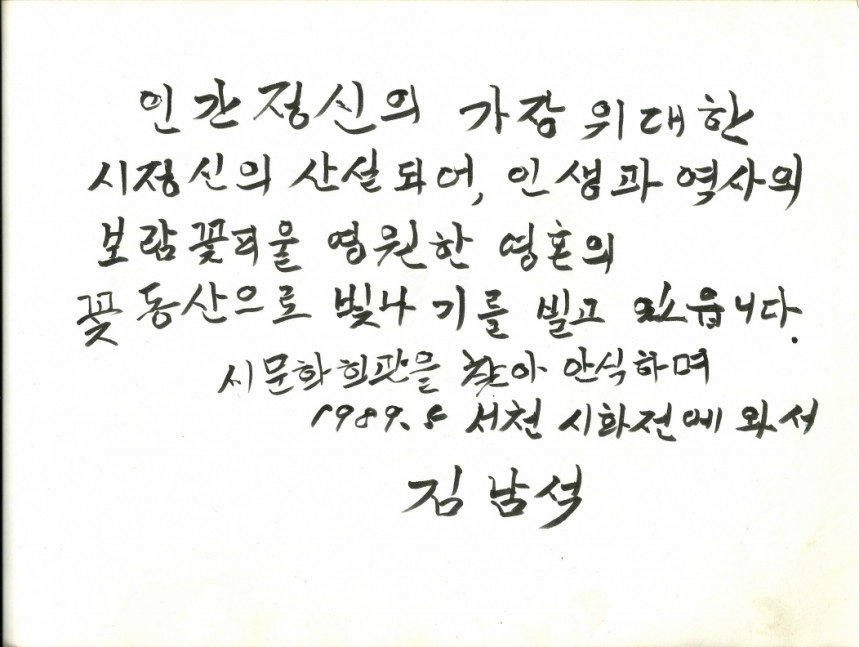 인간정신의 가장 위대한
시정신의 산실되어, 인생과 역사의
보람꽃피울 영원한 영혼의
꽃동산으로 빛나기를 빌고 있습니다.
시문화회관을 찾아 안식하며
1989. 5 서천 시화전에 와서
김남석